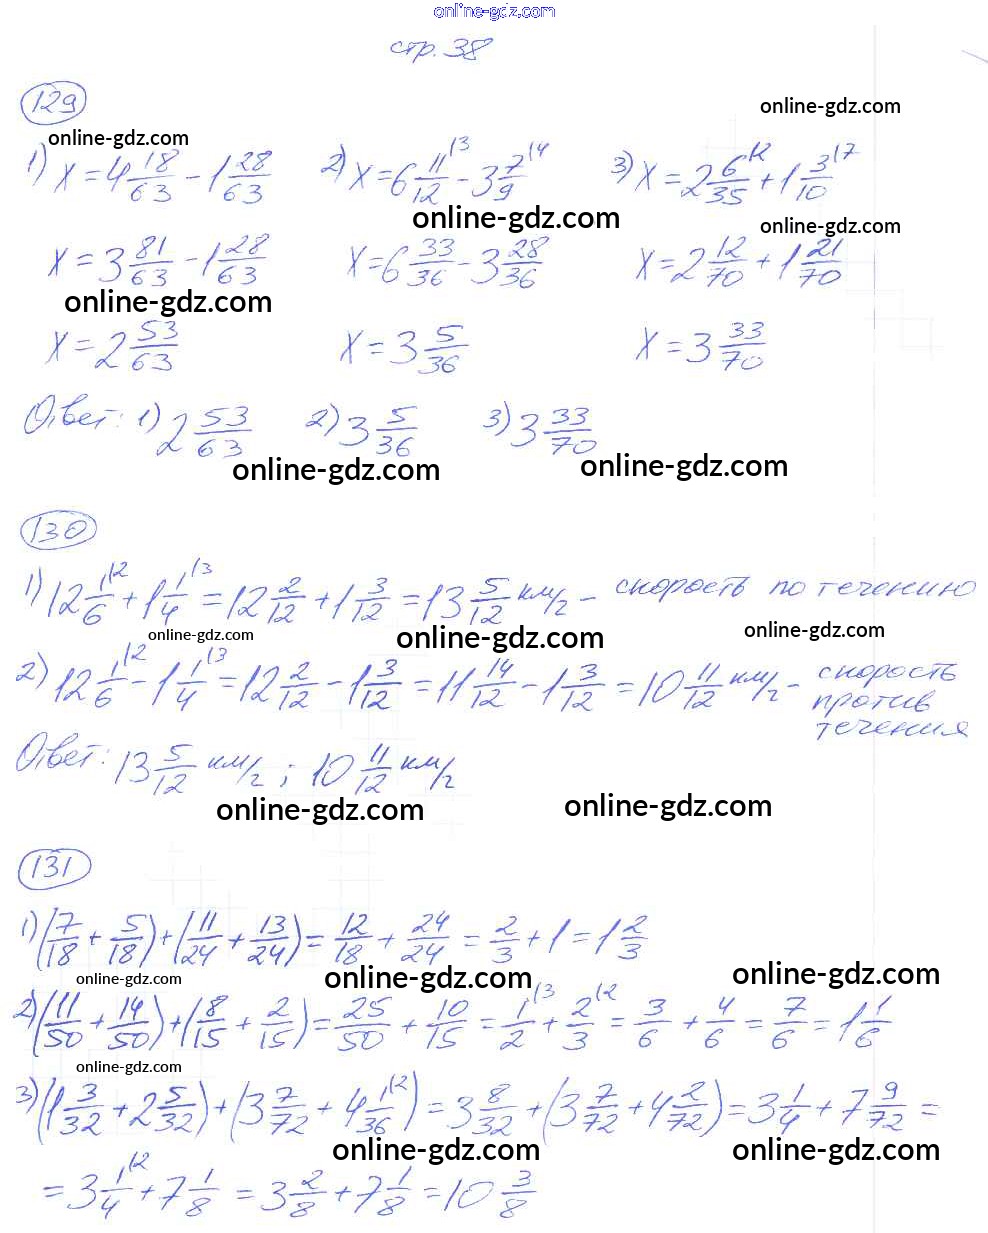 online-gdz.com
стр. 38
129
online-gdz.com
online-gdz.com
1) x = 4 18/63 - 1 28/63   2) x = 6 11/12 |3 - 3 7/9 |4   3) x = 2 6/35 |2 + 1 3/10 |7
online-gdz.com
online-gdz.com
x = 3 81/63 - 1 28/63   x = 6 33/36 - 3 28/36   x = 2 12/70 + 1 21/70
online-gdz.com
x = 2 53/63   x = 3 5/36   x = 3 33/70
Ответ: 1) 2 53/63   2) 3 5/36   3) 3 33/70
online-gdz.com
online-gdz.com
130
1) 12 1/6 |2 + 1 1/4 |3 = 12 2/12 + 1 3/12 = 13 5/12 км/г - скорость по течению
online-gdz.com
online-gdz.com
online-gdz.com
2) 12 1/6 |2 - 1 1/4 |3 = 12 2/12 - 1 3/12 = 11 14/12 - 1 3/12 = 10 11/12 км/г - скорость
против
течения
Ответ: 13 5/12 км/г ; 10 11/12 км/г
online-gdz.com
online-gdz.com
131
1) (7/18 + 5/18) + (11/24 + 13/24) = 12/18 + 24/24 = 2/3 + 1 = 1 2/3
online-gdz.com
online-gdz.com
online-gdz.com
2) (11/50 + 14/50) + (8/15 + 2/15) = 25/50 + 10/15 = 1/2 |3 + 2/3 |2 = 3/6 + 4/6 = 7/6 = 1 1/6
online-gdz.com
3) (1 3/32 + 2 5/32) + (3 7/72 + 4 1/36 |2) = 3 8/32 + (3 7/72 + 4 2/72) = 3 1/4 + 7 9/72 =
online-gdz.com
online-gdz.com
= 3 1/4 |2 + 7 1/8 = 3 2/8 + 7 1/8 = 10 3/8